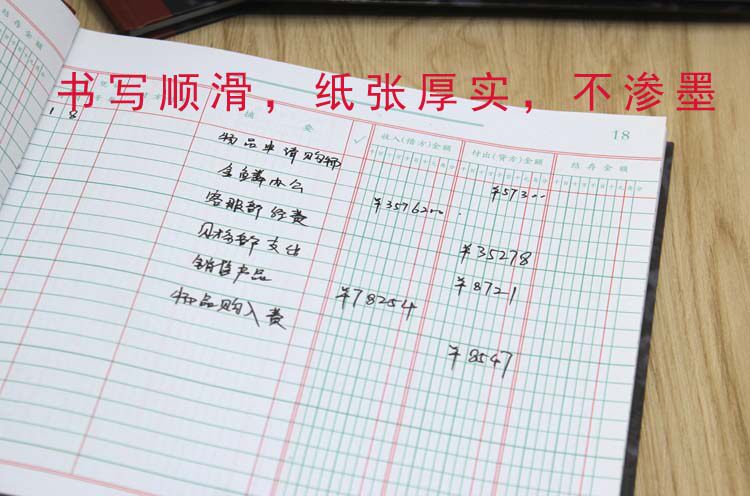 结存金额
书写顺滑，纸张厚实，不渗墨
18
摘要
收入(借方)金额
付出(贷方)金额
结存金额
1 8
物品申请购物
¥57300
全套办公
¥3576200
客服部经费
¥35278
财务部支出
¥8721
销售产品
¥78254
物品购入费
¥8547